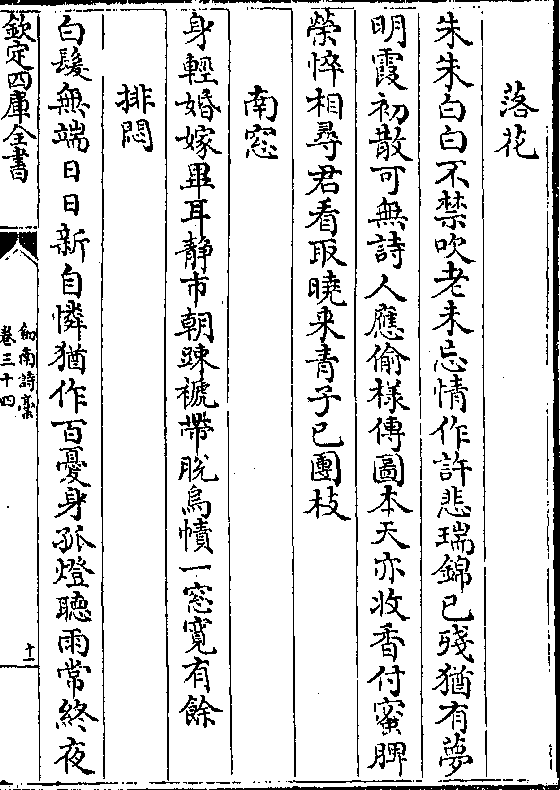 落花
朱朱白白不禁吹老未忘情作許悲瑞錦已殘猶有夢
明霞初散可無詩人應偷樣傳圖本天亦收香付蜜脾
榮悴相尋君看取曉來青子已團枝
南窓
身輕婚嫁畢耳静市朝踈褫帶脫烏幘一窓寛有餘
排悶
白髪無端日日新自憐猶作百憂身孤燈聽雨常終夜
欽定四庫全書
劍南詩藁
卷三十四
十二